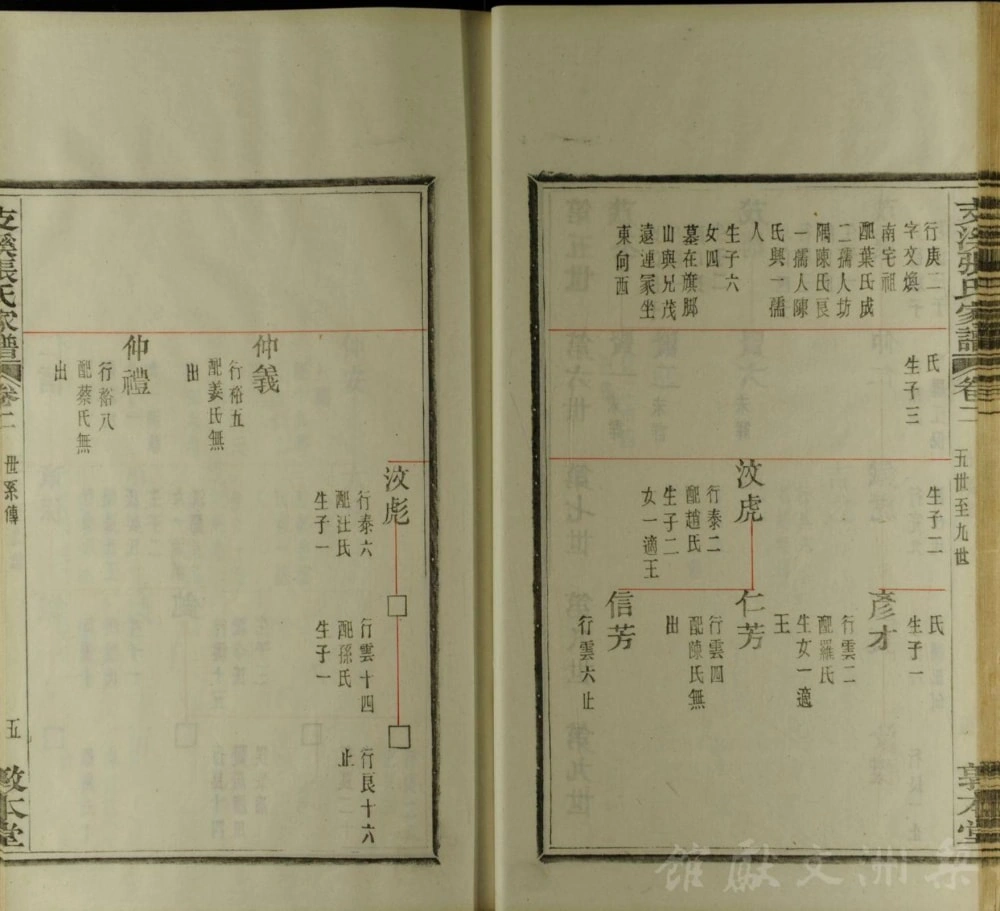 支溪張氏家譜 卷二
五世至九世
敦本堂
行庚二
字文煥
南宅祖
配葉氏成
二孺人坊
隅陳氏良
一孺人陳
氏與一孺
人
生子六
女四
墓在旗脚
山與兄茂
遠連冢坐
東向西
氏
生子三
生子二
汶虎
行泰二
配趙氏
生子二
女一適王
氏
生子一
彥才
行雲二
配羅氏
生女一適
王
仁芳
行雲四
配陳氏無
出
信芳
行雲六止
仲義
行裕五
配姜氏無
出
仲禮
行裕八
配蔡氏無
出
汶彪
行泰六
配汪氏
生子一
□
行雲十四
配孫氏
生子一
□
行良十六
止
支溪張氏家譜 卷二
世系傳
五
敦本堂
梨洲文獻館